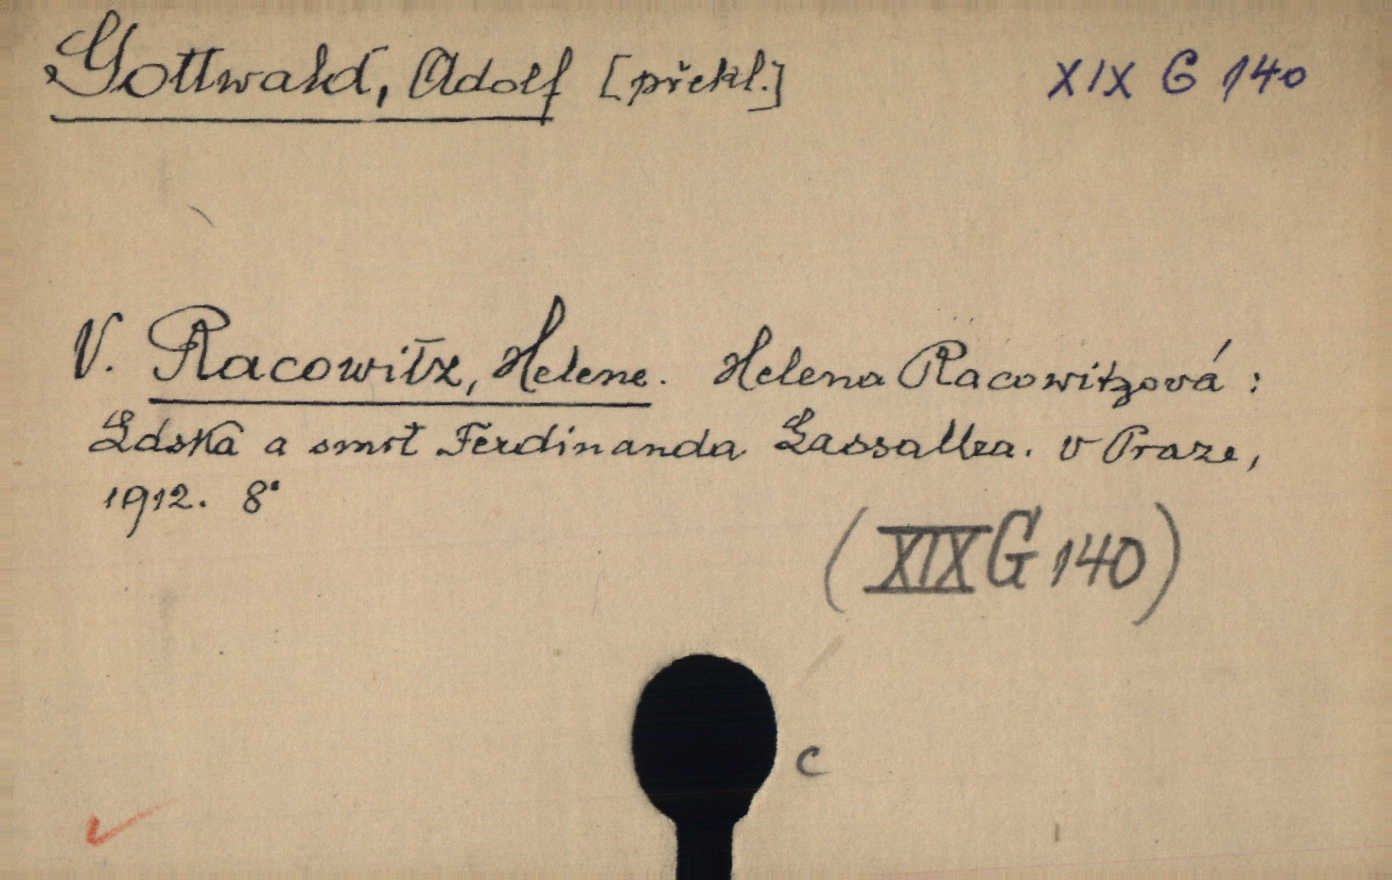 Gottwald, Adolf [překl.] XIX G 140
V. Racowitz, Helene. Helena Racowitzová:
Láska a smrt Ferdinanda Lassallea. V Praze,
1912. 8°
(XIX G 140)
c